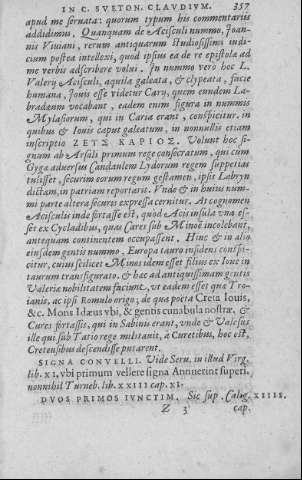 IN C. SVETON. CLAVDIVM. 357
apud me seruata: quorum typum his commentariis
addidimus. Quanquam de Acisculi nummo, Ioan-
nis Viuiani, rerum antiquarum studiosissimi indi-
cium postea intellexi, quod ipsius ea de re epistola ad
me verbis adscribere volui. In nummo vero hoc L.
Valerij Acisculi, aquila galeata, & clypeata, facie
humana, Iouis esse videtur Cary, quem eundem La-
bradeum vocabant, eadem enim figura in nummis
Mylasiorum, qui in Caria erant, conspicitur, in
quibus & Iouis caput galeatum, in nonnullis etiam
inscriptio ΖΕΥΣ ΚΑΡΙΟΣ. Volunt hoc si-
gnum ab Arseli primum rege consecratum, qui cùm
Gyga aduersus Candaulem Lydorum regem suppetias
tulisset, securim eorum regum gestamen, ipsis Labryn
dictam, in patriam reportaris. Vnde & in huius num-
mi parte altera securis expressa cernitur. At cognomen
Acisculi inde fortasse est, quod Acis insula vna es-
set ex Cycladibus, quas Cares sub Minoë incolebant,
antequam continentem occupassent. Hinc & in alio
eiusdem gentis nummo, Europa tauro insidens conspi-
citur, cuius scilicet Minos idem esset filius ex Ioue in
taurum transfigurato. & hec ad antiquissimam gentis
Valeriæ nobilitatem faciunt, vt eadem esset quæ Tro-
ianis, ac ipsi Romulo origo; de qua poeta Creta Iouis,
&c. Mons Idæus vbi, & gentis cunabula nostræ, &
Cures fortassis, qui in Sabinis erant, vnde & Valesus
ille qui sub Tatio rege militauit, à Curetibus, hoc est,
Cretensibus descendisse putarent.
SIGNA CONVELLI. Vide Seru. in illud Virg.
lib. XI. vbi primum vellere signa Annuerint superi.
nonnihil Turneb. lib. XXIIII cap. XI.
DVOS PRIMOS IVNCTIM. Sic sup. Calig. XIIII.
Z 3 cap.